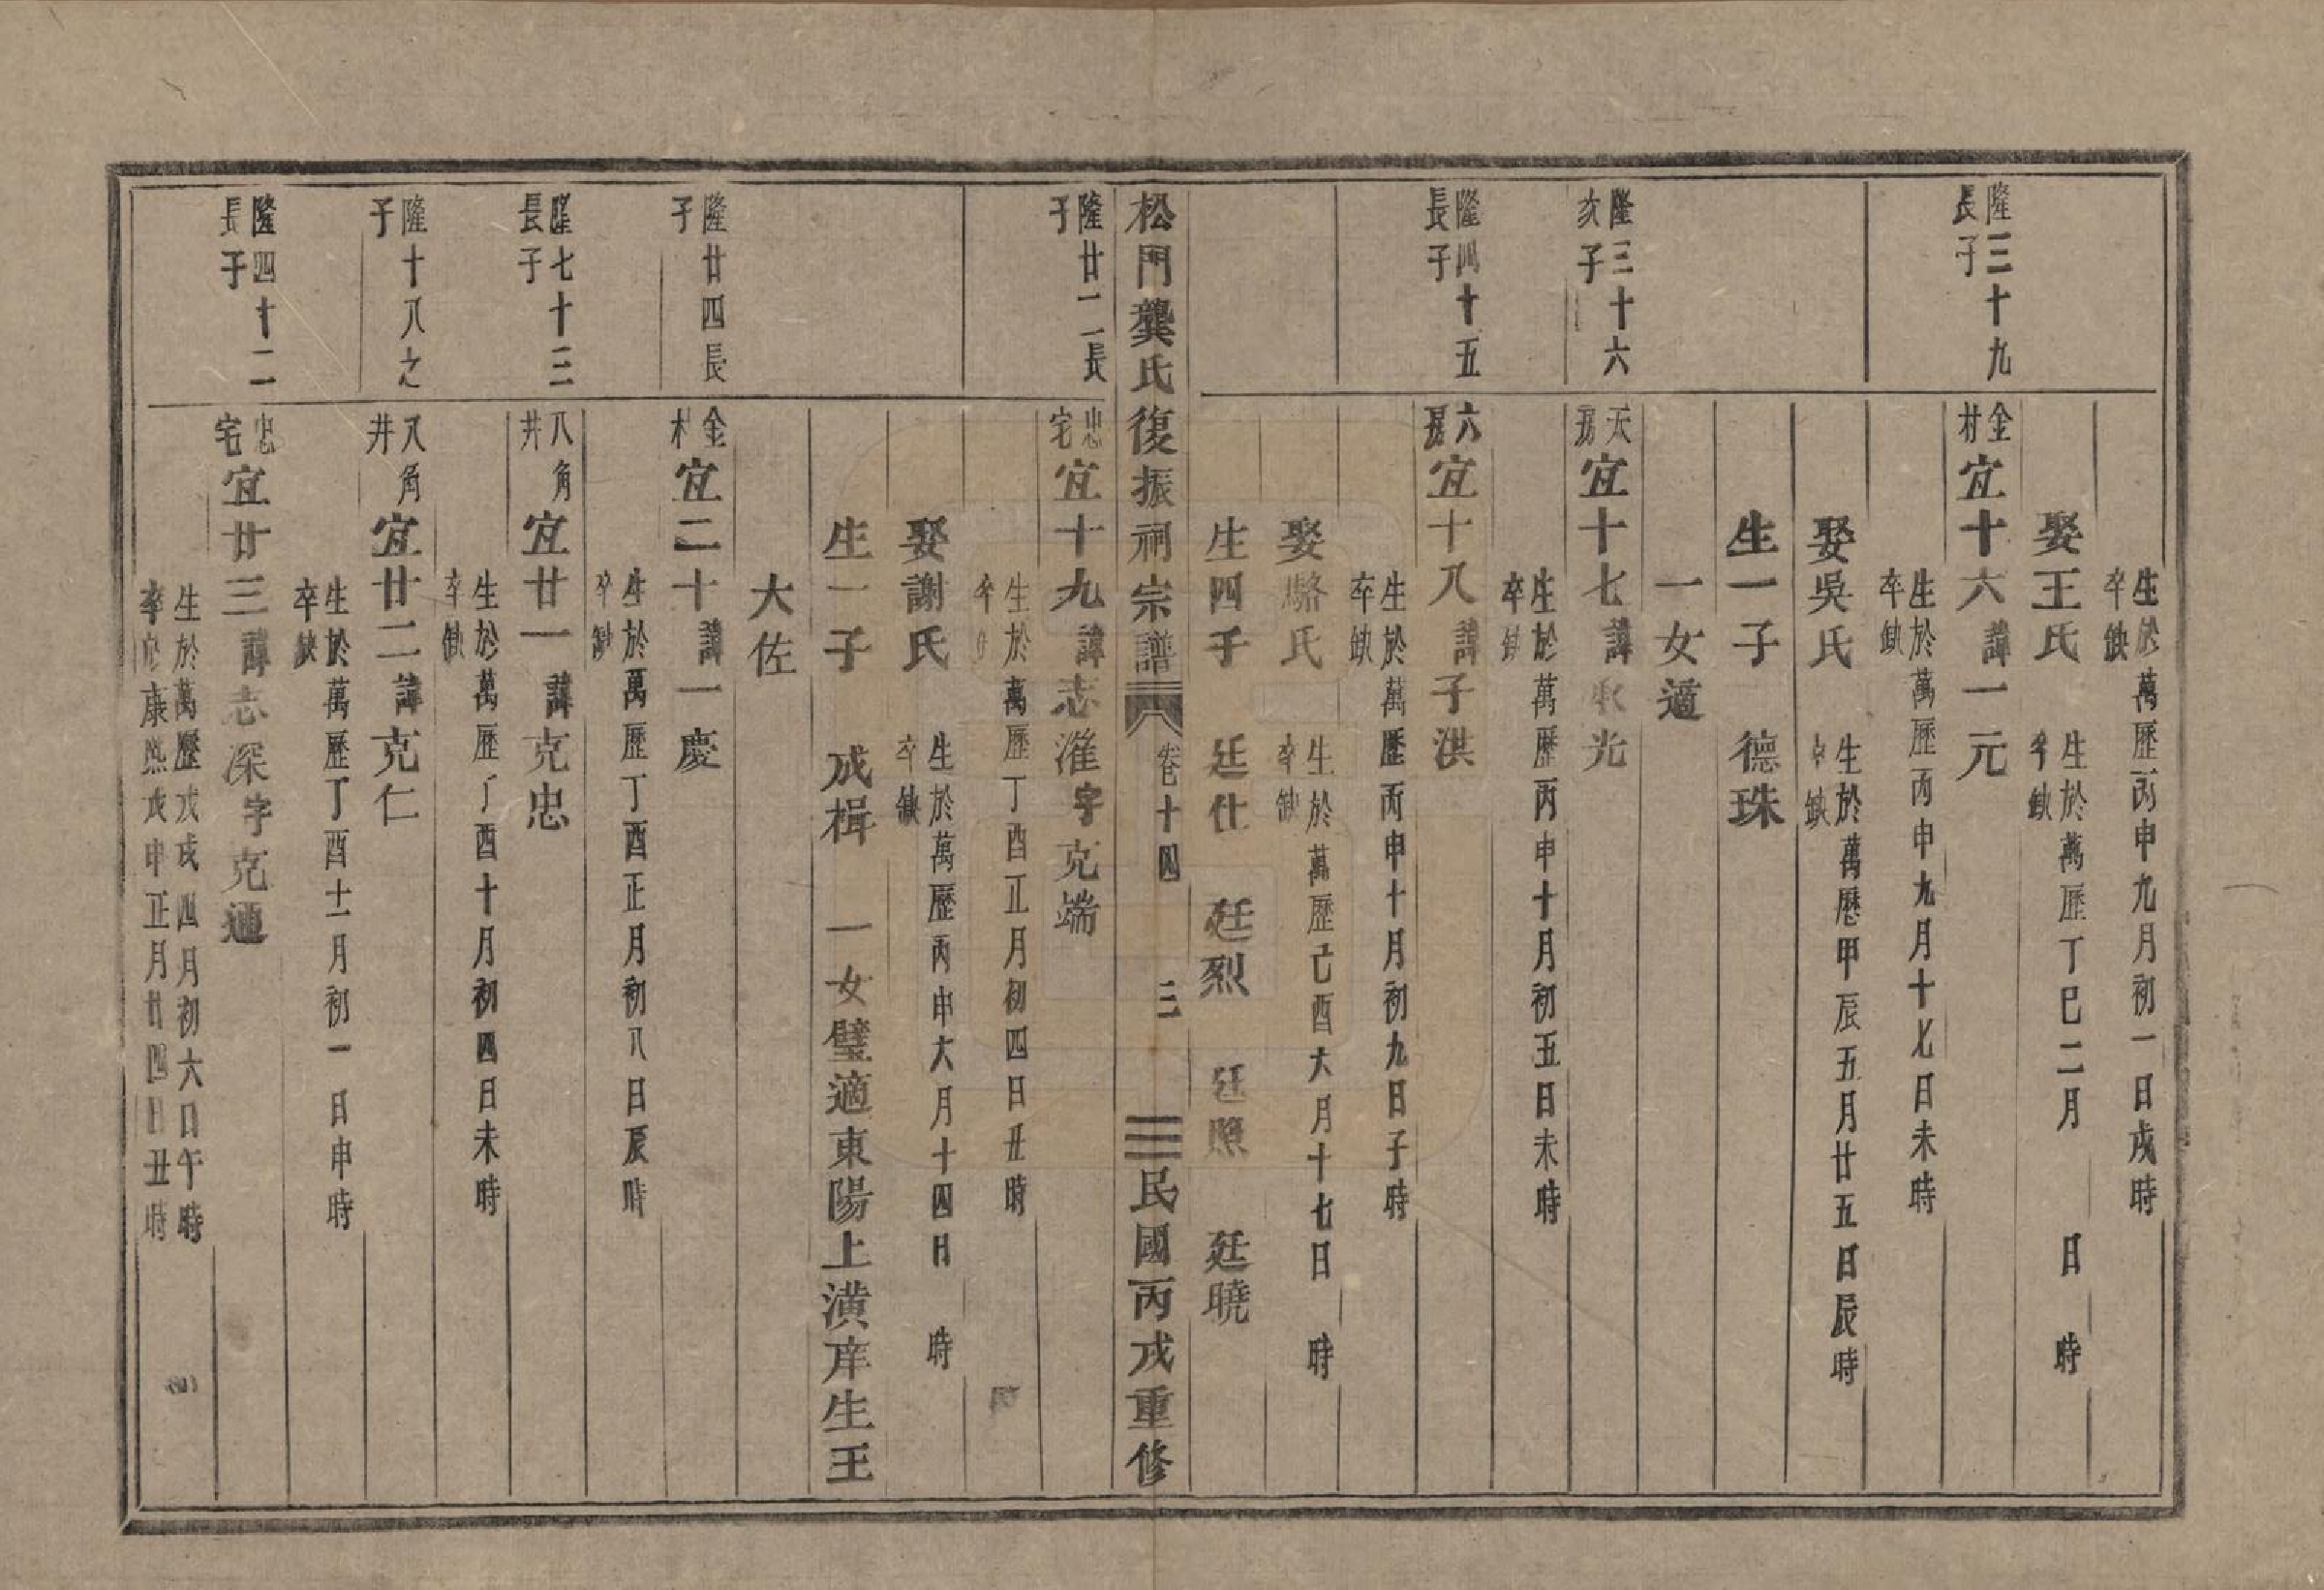 生於萬歷丙申九月初一日戌時
卒缺
娶王氏
生於萬歷丁巳二月 日 時
卒缺
隆三十九
長子
金村
宜十六諱一元
生於萬歷丙申九月十七日未時
卒缺
娶吳氏
生於萬歷甲辰五月廿五日辰時
卒缺
生一子 德珠
一女適
隆三十六
次子
宜十七諱 光
生於萬歷丙申十月初五日未時
卒缺
隆四十五
長子
宜十八諱子洪
生於萬歷丙申十月初九日子時
卒缺
娶駱氏
生於萬歷己酉六月十七日 時
卒缺
生四子 廷仕 廷烈 廷照 廷曉
松門龔氏復振祠宗譜 卷十四 三 民國丙戌重修
隆廿二長
子
忠宅
宜十九諱志漼字克端
生於萬歷丁酉正月初四日丑時
卒
娶謝氏
生於萬歷丙申六月十四日 時
卒缺
生一子 成楫 一女璧適東陽上潢庠生王
大佐
隆廿四長
子
金村
宜二十諱一慶
生於萬歷丁酉正月初八日辰時
卒缺
隆七十三
長子
八角井
宜廿一諱克忠
生於萬歷丁酉十月初四日未時
卒缺
隆十八之
子
八角井
宜廿二諱克仁
生於萬歷丁酉十一月初一日申時
卒缺
隆四十二
長子
忠宅
宜廿三諱志深字克通
生於萬歷戊戌四月初六日午時
卒於康熙戊申正月廿四日丑時